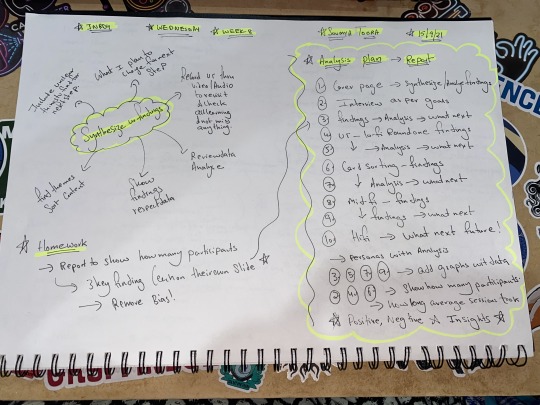 ☆ INBDY ☆ WEDNESDAY ☆ WEEK-8
What I plan to
change for next
step
Include
next step.
Record ur thru
video/Audio
to revisit
& check
all learning
and not miss
anything.
Synthesize ur findings
Review data
Analyze
find themes
sort content
Show
findings
respect data
☆ Homework
→ Report to show how many participants
↳ 3 key finding (each on their own slide ☆
→ Remove Bias!
15/9/21
☆ Analysis plan → Report
1 Cover page → Synthesize/Analyze findings
2 Interview as per goals
3 findings → Analysis → what next
4 ur - lo-fi Round one findings
5 ↓ → Analysis → what next
6 Card sorting - findings
7 ↓ Analysis → what next
8 Mid-fi - findings
9 ↓ findings → what next
10 Hifi - What next future!
→ personas with Analysis
3 5 7 9 → add graphs with data
2 4 6 → Show how many participants
→ how long average session took
☆ Positive, Negtive ☆ Insights ☆